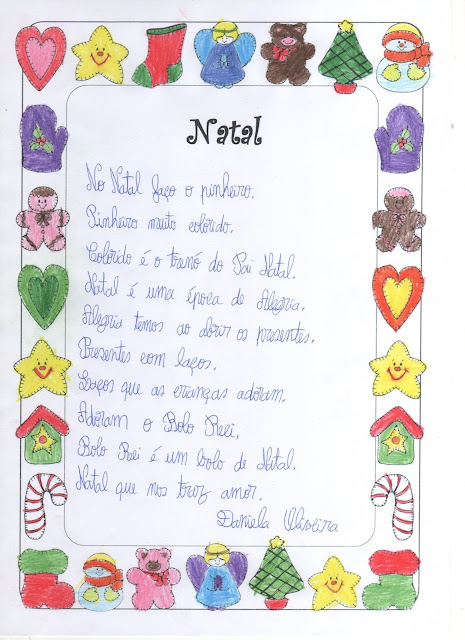 Natal
No Natal faço o pinheiro.
Pinheiro muito colorido.
Colorido é o trenó do Pai Natal.
Natal é uma época de Alegria.
Alegria temos ao abrir os presentes.
Presentes com laços.
Laços que as crianças adoram.
Adoram o Bolo Reei,
Bolo Reei é um bolo de Natal.
Natal que nos traz amor.
Daniela Oliveira